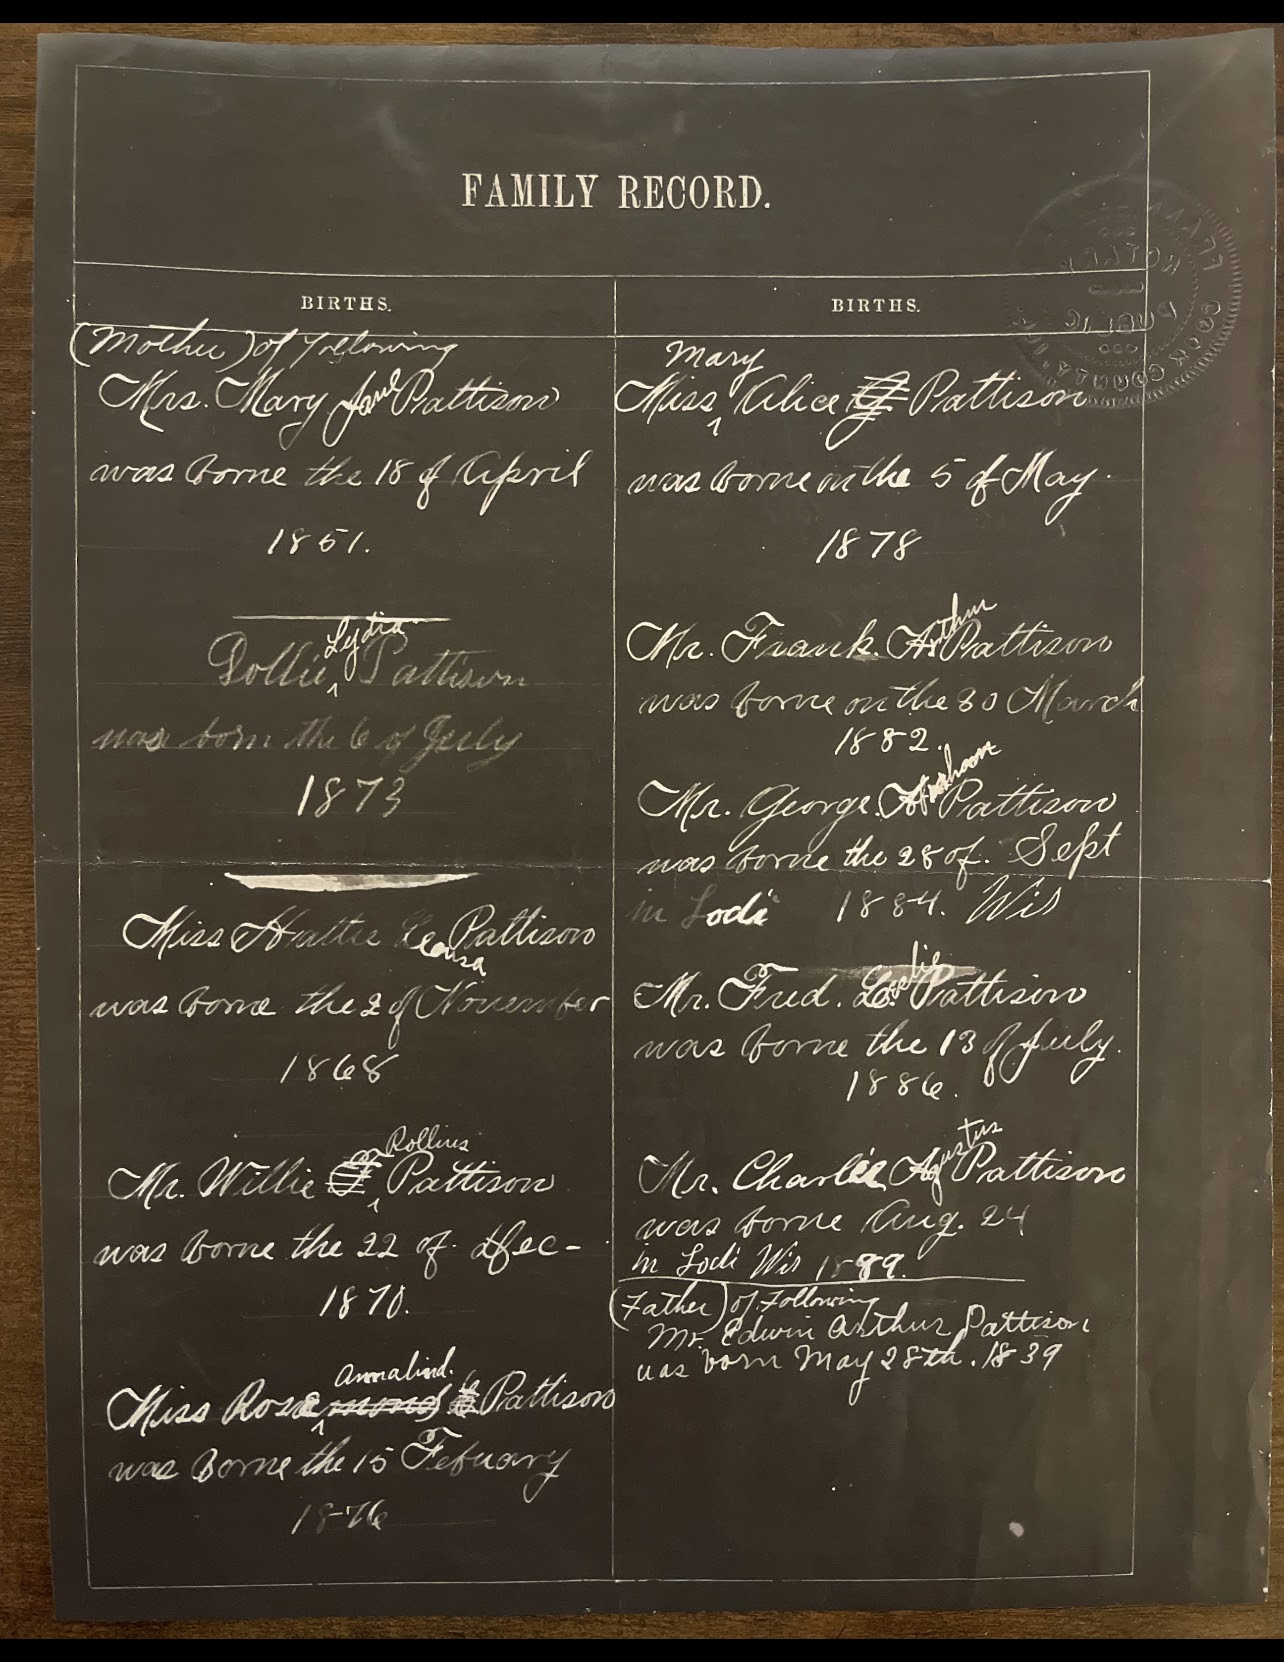 FAMILY RECORD.
BIRTHS.
(Mother) of following
Mrs. Mary Jane Pattison
was borne the 18 of April
1851.
Dollie Lydia Pattison
was born the 6 of July
1873
Miss Hattie Leousa Pattison
was borne the 2 of November
1868
Mr. Willie Rollins Pattison
was borne the 22 of Dec-
1870.
Miss Rose Annabind. Pattison
was borne the 15 Febuary
1876
BIRTHS.
Miss Mary Alice Pattison
was borne on the 5 of May.
1878
Mr. Frank. Arthur Pattison
was borne on the 30 March
1882.
Mr. George. Pattison
was borne the 28 of. Sept
in Lodi 1884. Wis
Mr. Fred. Leslie Pattison
was borne the 13 of July.
1886.
Mr. Charlie Agustus Pattison
was borne Aug. 24
in Lodi Wis 1889.
(Father) of Following
Mr. Edwin Arthur Pattison
was born May 28th. 1839
NOTARY
PUBLIC
COOK COUNTY